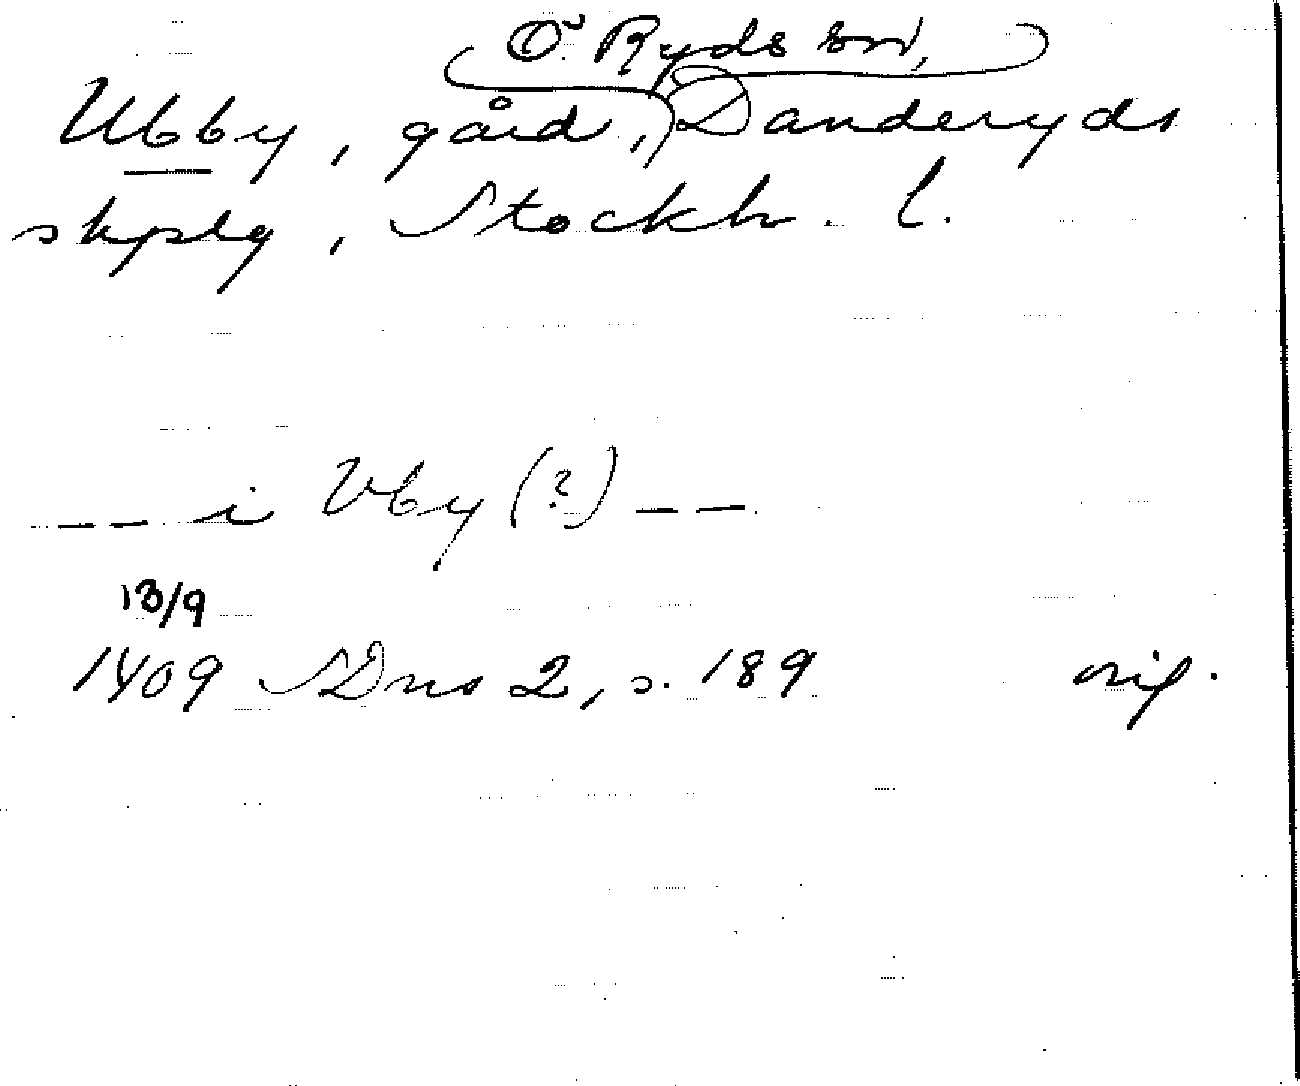 Ö. Ryds sn,
Ubby, gård, Danderyds
skplg, Stockh. l.
--- i Vby (?) --
13/9
1409 SDns 2, s. 189 orig.